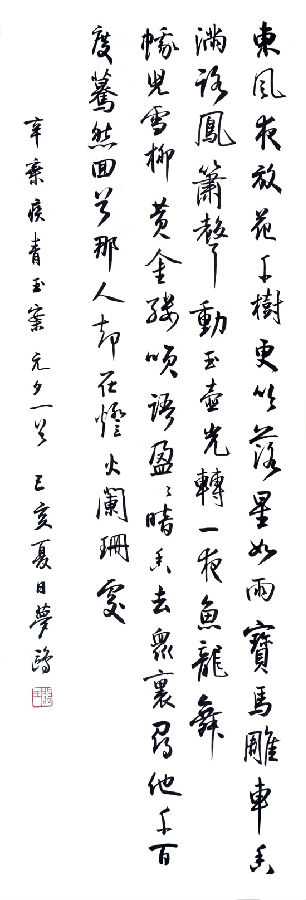 東風夜放花千樹更吹落星如雨寶馬雕車香
滿路鳳簫聲動玉壺光轉一夜魚龍舞
蛾兒雪柳黄金縷笑語盈盈暗香去衆裏尋他千百
度驀然回首那人却在燈火闌珊處
辛棄疾青玉案元夕一首 己亥夏日夢鷗